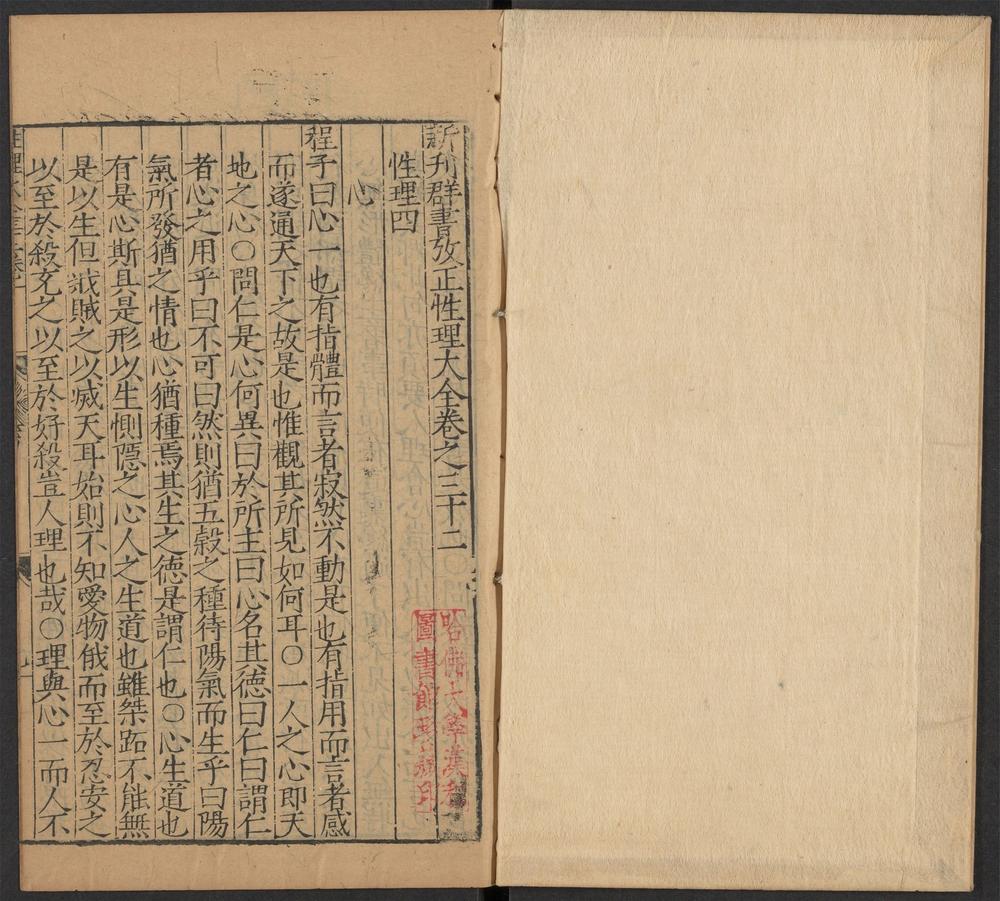 新刊群書攷正性理大全卷之三十二
性理四
心
程子曰心一也有指體而言者寂然不動是也有指用而言者感
而遂通天下之故是也惟觀其所見如何耳○一人之心即天
地之心○問仁是心何異曰於所主曰心名其德曰仁曰謂仁
者心之用乎曰不可曰然則猶五穀之種待陽氣而生乎曰陽
氣所發猶之情也心猶種焉其生之德是謂仁也○心生道也
有是心斯具是形以生惻隱之心人之生道也雖桀跖不能無
是以生但戕賊之以滅天耳始則不知愛物俄而至於忍安之
以至於殺充之以至於好殺豈人理也哉○理與心一而人不
哈佛大學漢和
圖書館珍藏印